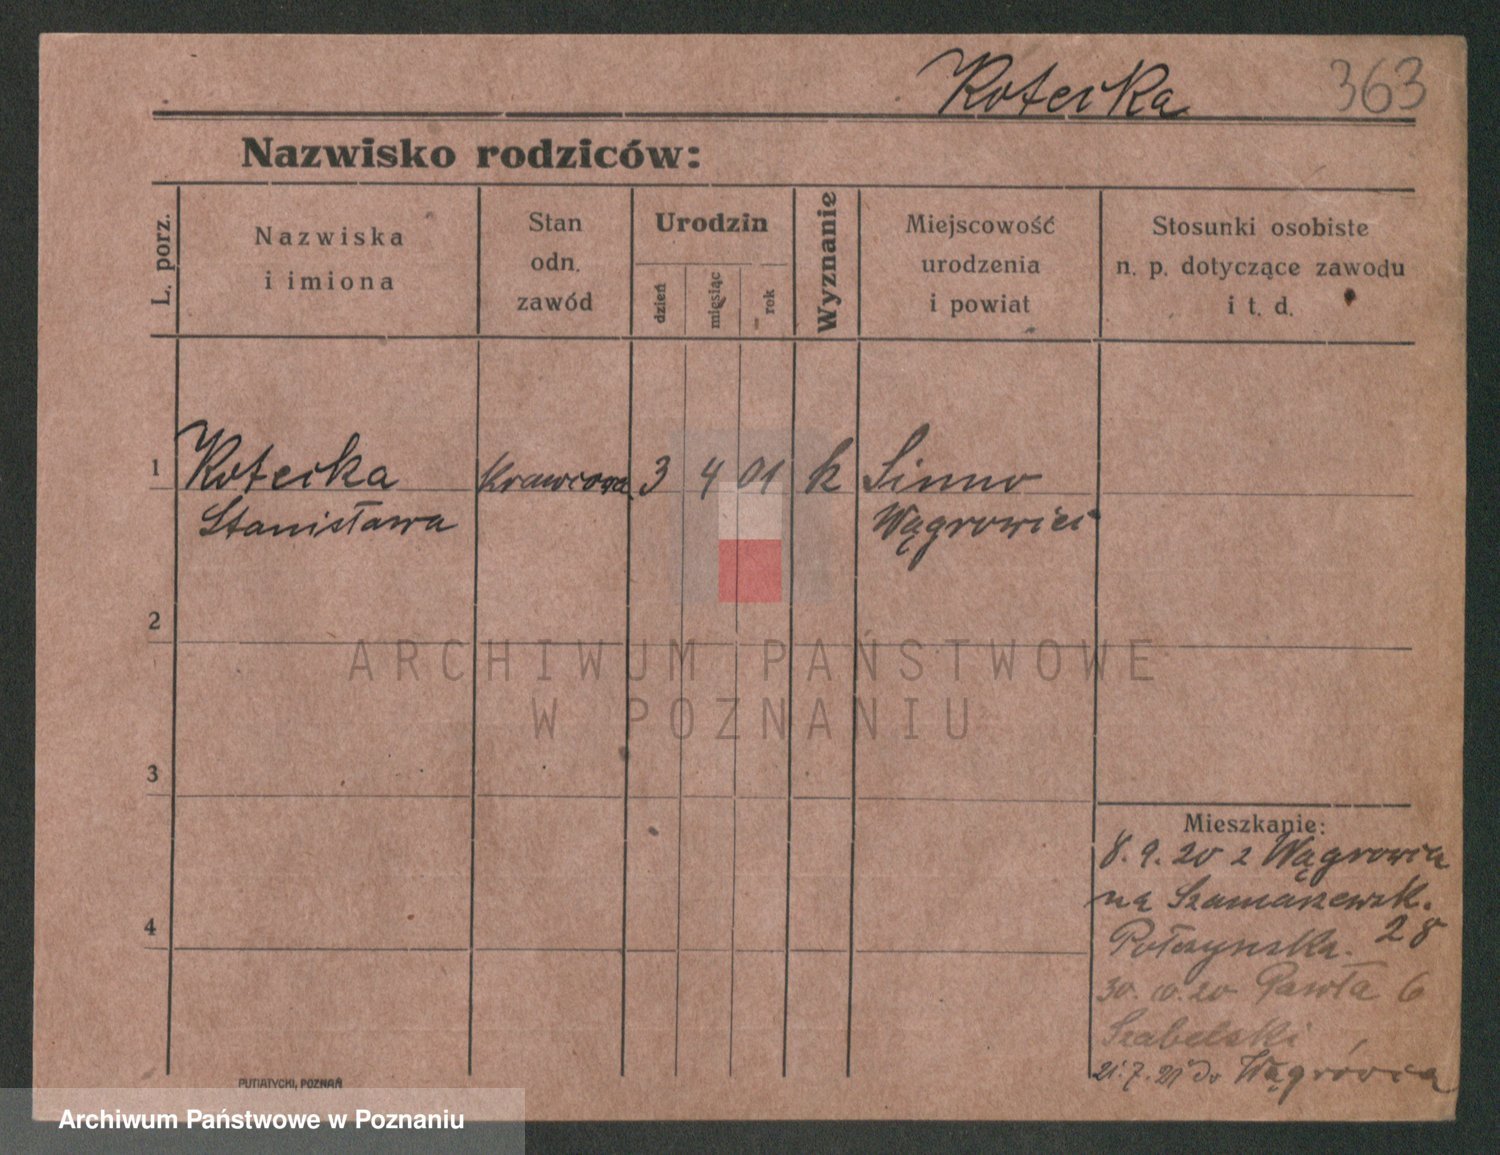 Kotecka 363
Nazwisko rodziców:
L. porz.
Nazwiska
i imiona
Stan
odn.
zawód
Urodzin
dzień
miesiąc
rok
Wyznanie
Miejscowość
urodzenia
i powiat
Stosunki osobiste
n. p. dotyczące zawodu
i t. d.
1 Kotecka Krawcowa 3 4 01 k
Stanisława Wągrowiec
2
ARCHIWUM PAŃSTWOWE
W POZNANIU
3
Mieszkanie:
8.9.20 z Wągrowca
na Szamarzewsk.
28
4
30.10.20 Pawła 6
Szabelski
21.7.21 do Wągrówca
PUTIATYCKI, POZNAŃ
Archiwum Państwowe w Poznaniu